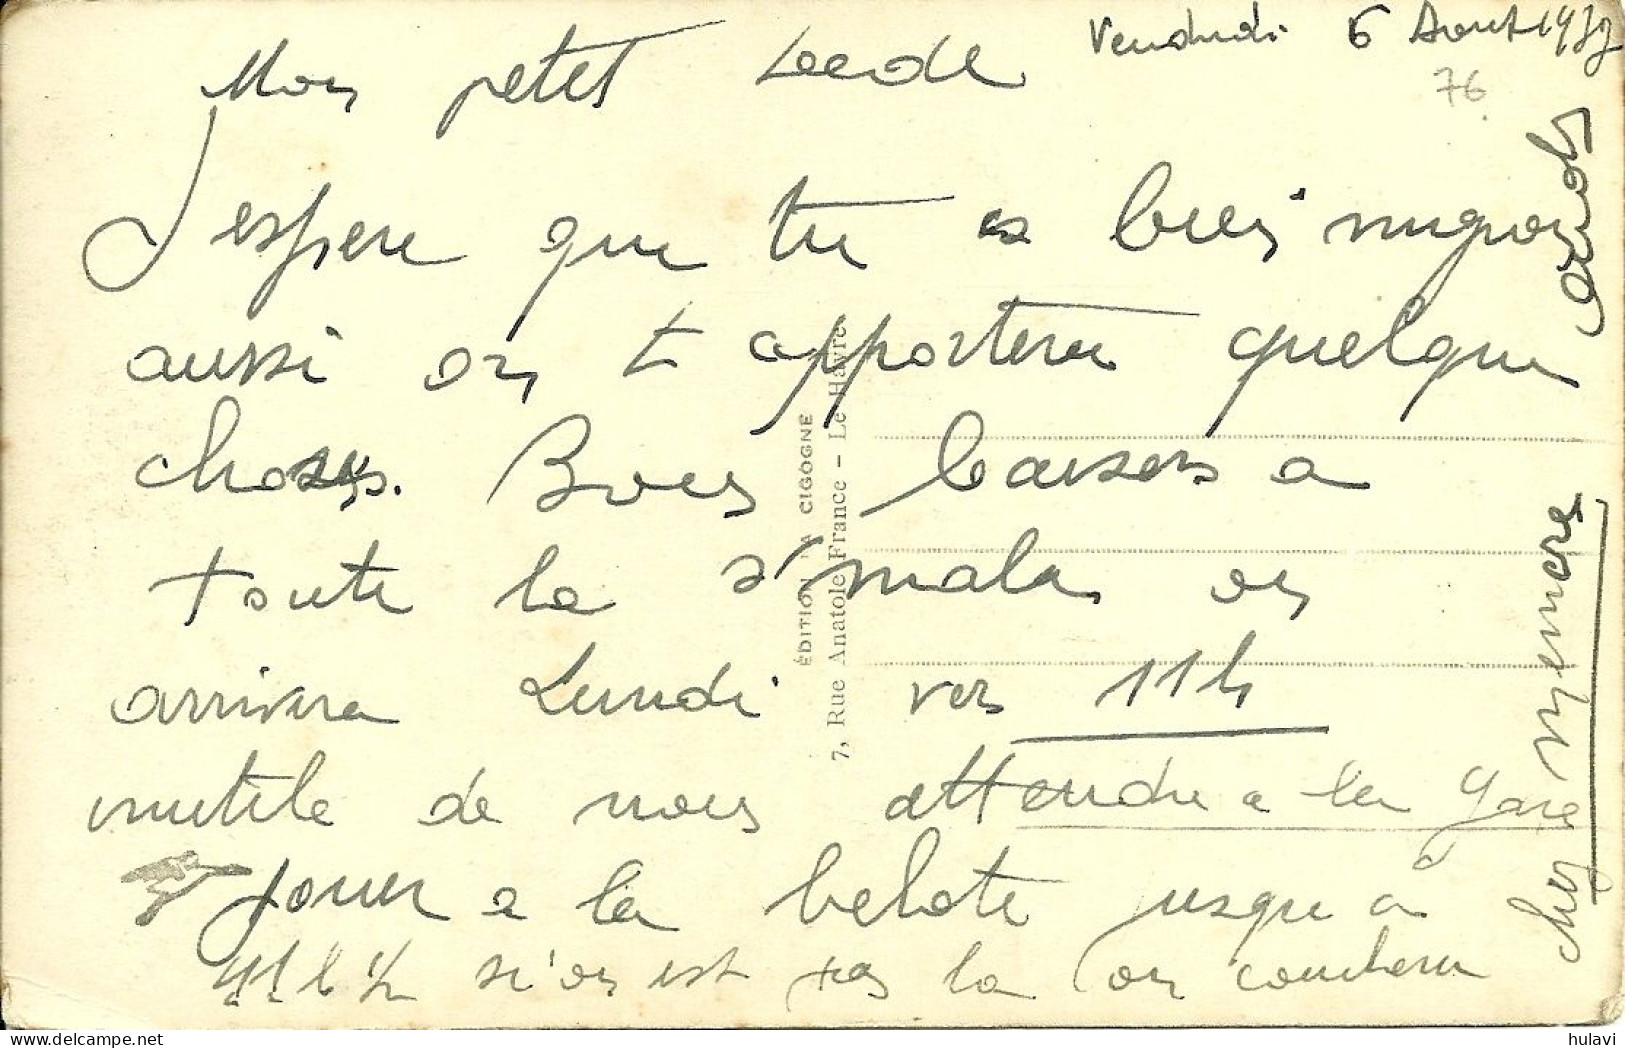 Vendredi 6 Aout 1937
76
Mon petit
J espere que tu es bien mignon
aussi on t apportera quelque
choses. Bons baisers a
toute la s'mala on
arrivera Lundi vers 11h
inutile de nous attendre a la gare
jouer a la belote jusqu a
11h 1/2 si on est pas la on couchera
chez
ÉDITION LA CIGOGNE
7, Rue Anatole France - Le Havre